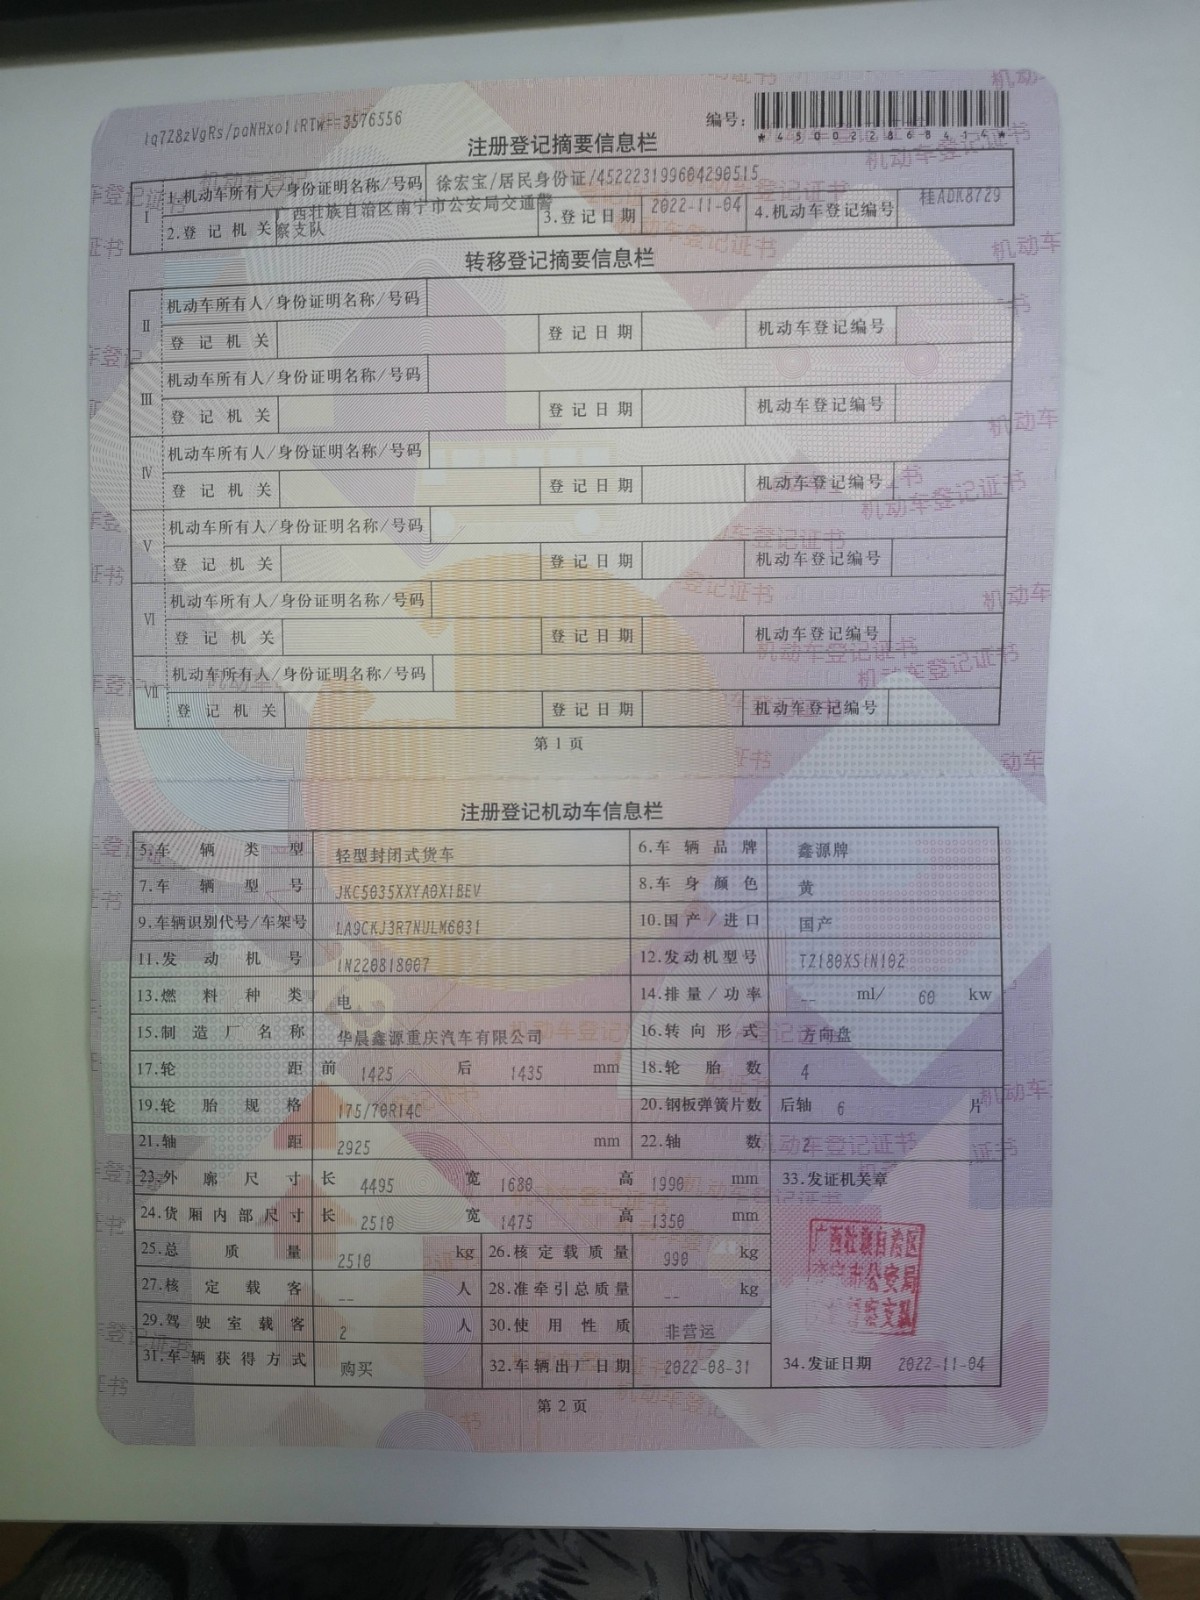 iq7Z8zVgRs/paNHxo1iRTw==3576556
编号:
*450022868414*
注册登记摘要信息栏
Ⅰ 1.机动车所有人/身份证明名称/号码 徐宏宝/居民身份证/452223199604290515
2.登记机关 广西壮族自治区南宁市公安局交通警察支队 3.登记日期 2022-11-04 4.机动车登记编号 桂ADK8729
转移登记摘要信息栏
Ⅱ 机动车所有人/身份证明名称/号码
登记机关 登记日期 机动车登记编号
Ⅲ 机动车所有人/身份证明名称/号码
登记机关 登记日期 机动车登记编号
Ⅳ 机动车所有人/身份证明名称/号码
登记机关 登记日期 机动车登记编号
Ⅴ 机动车所有人/身份证明名称/号码
登记机关 登记日期 机动车登记编号
Ⅵ 机动车所有人/身份证明名称/号码
登记机关 登记日期 机动车登记编号
Ⅶ 机动车所有人/身份证明名称/号码
登记机关 登记日期 机动车登记编号
第1页
注册登记机动车信息栏
5.车辆类型 轻型封闭式货车 6.车辆品牌 鑫源牌
7.车辆型号 JKC5035XXYA0X1BEV 8.车身颜色 黄
9.车辆识别代号/车架号 LA9CKJ3R7NULM6031 10.国产/进口 国产
11.发动机号 1N220818007 12.发动机型号 TZ180XSIN102
13.燃料种类 电 14.排量/功率 -- ml/ 60 kw
15.制造厂名称 华晨鑫源重庆汽车有限公司 16.转向形式 方向盘
17.轮距 前 1425 后 1435 mm 18.轮胎数 4
19.轮胎规格 175/70R14C 20.钢板弹簧片数 后轴 6 片
21.轴距 2925 mm 22.轴数 2
23.外廓尺寸 长 4495 宽 1680 高 1990 mm 33.发证机关章
24.货厢内部尺寸 长 2510 宽 1475 高 1350 mm
25.总质量 2510 kg 26.核定载质量 990 kg
27.核定载客 -- 人 28.准牵引总质量 -- kg
29.驾驶室载客 2 人 30.使用性质 非营运
31.车辆获得方式 购买 32.车辆出厂日期 2022-08-31 34.发证日期 2022-11-04
广西壮族自治区
市公安局
察支队
第2页